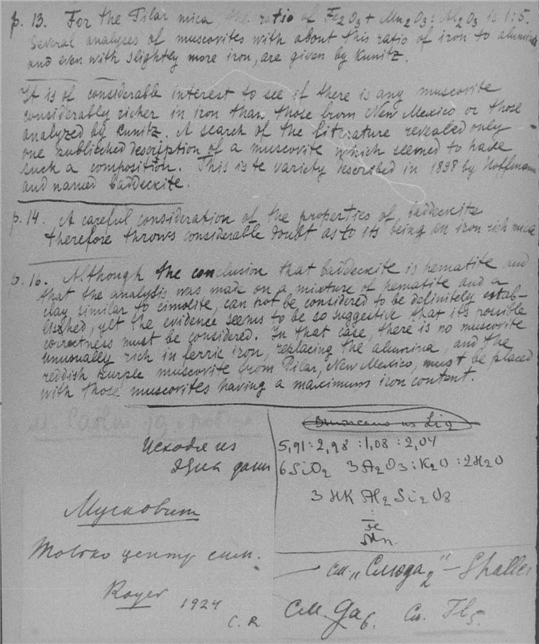 p. 13. For the Pilar mica the ratio of Fe2O3 + Mn2O3 : Al2O3 is 1:5.
Several analyses of muscovites with about this ratio of iron to
and even with slightly more iron, are given by Kunitz.
It is of considerable interest to see if there is any muscovite
considerably richer in iron than those from New Mexico or those
analyzed by Kunitz. A search of the literature revealed only
one published description of a muscovite which seemed to have
such a composition. This is te variety described in 1898 by Hoffmann
and named baddeckite.
p. 14. A careful consideration of the properties of, baddeckite
therefore throws considerable doubt as to its being an iron rich mica
p. 16. Although the conclusion that baddeckite is hematite and
that the analysis was made on a mixture of hematite and a
clay similar to cimolite, can not be considered to be definitely estab-
lished, yet the evidence seems to be so suggestive that its possible
correctness must be considered. In that case, there is no muscovite
unusually rich in ferric iron, replacing the alumina, and the
reddish purple muscovite from Pilar, New Mexico, must be placed
with those muscovites having a maximum iron content.
Исходя из
5,91 : 2,98 : 1,08 : 2,04
6SiO2 3Al2O3 : K2O : 2H2O
3 HK Al2Si2O8
Fe
Mn.
Мусковит
Только центр сим.
1924
C. R.
см. "Слюда2" – Shaller
См.